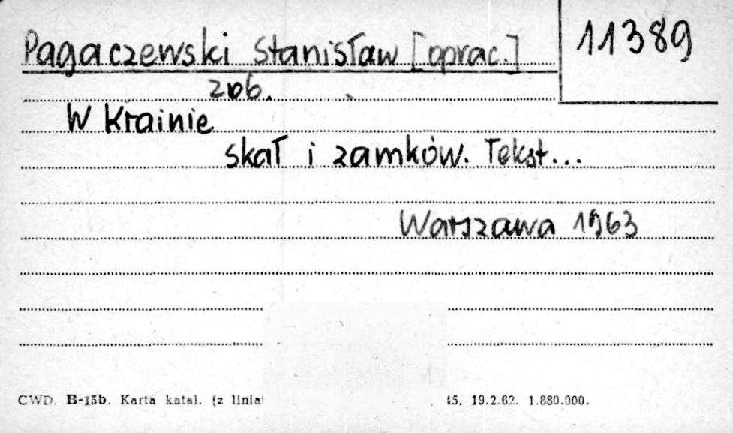 Pagaczewski Stanisław [oprac.]
11389
zob.
W Krainie
skał i zamków. Tekst...
Warszawa 1963
CWD. B-15b. Karta katal. (z linia
45, 19.2.62. 1.880.000.